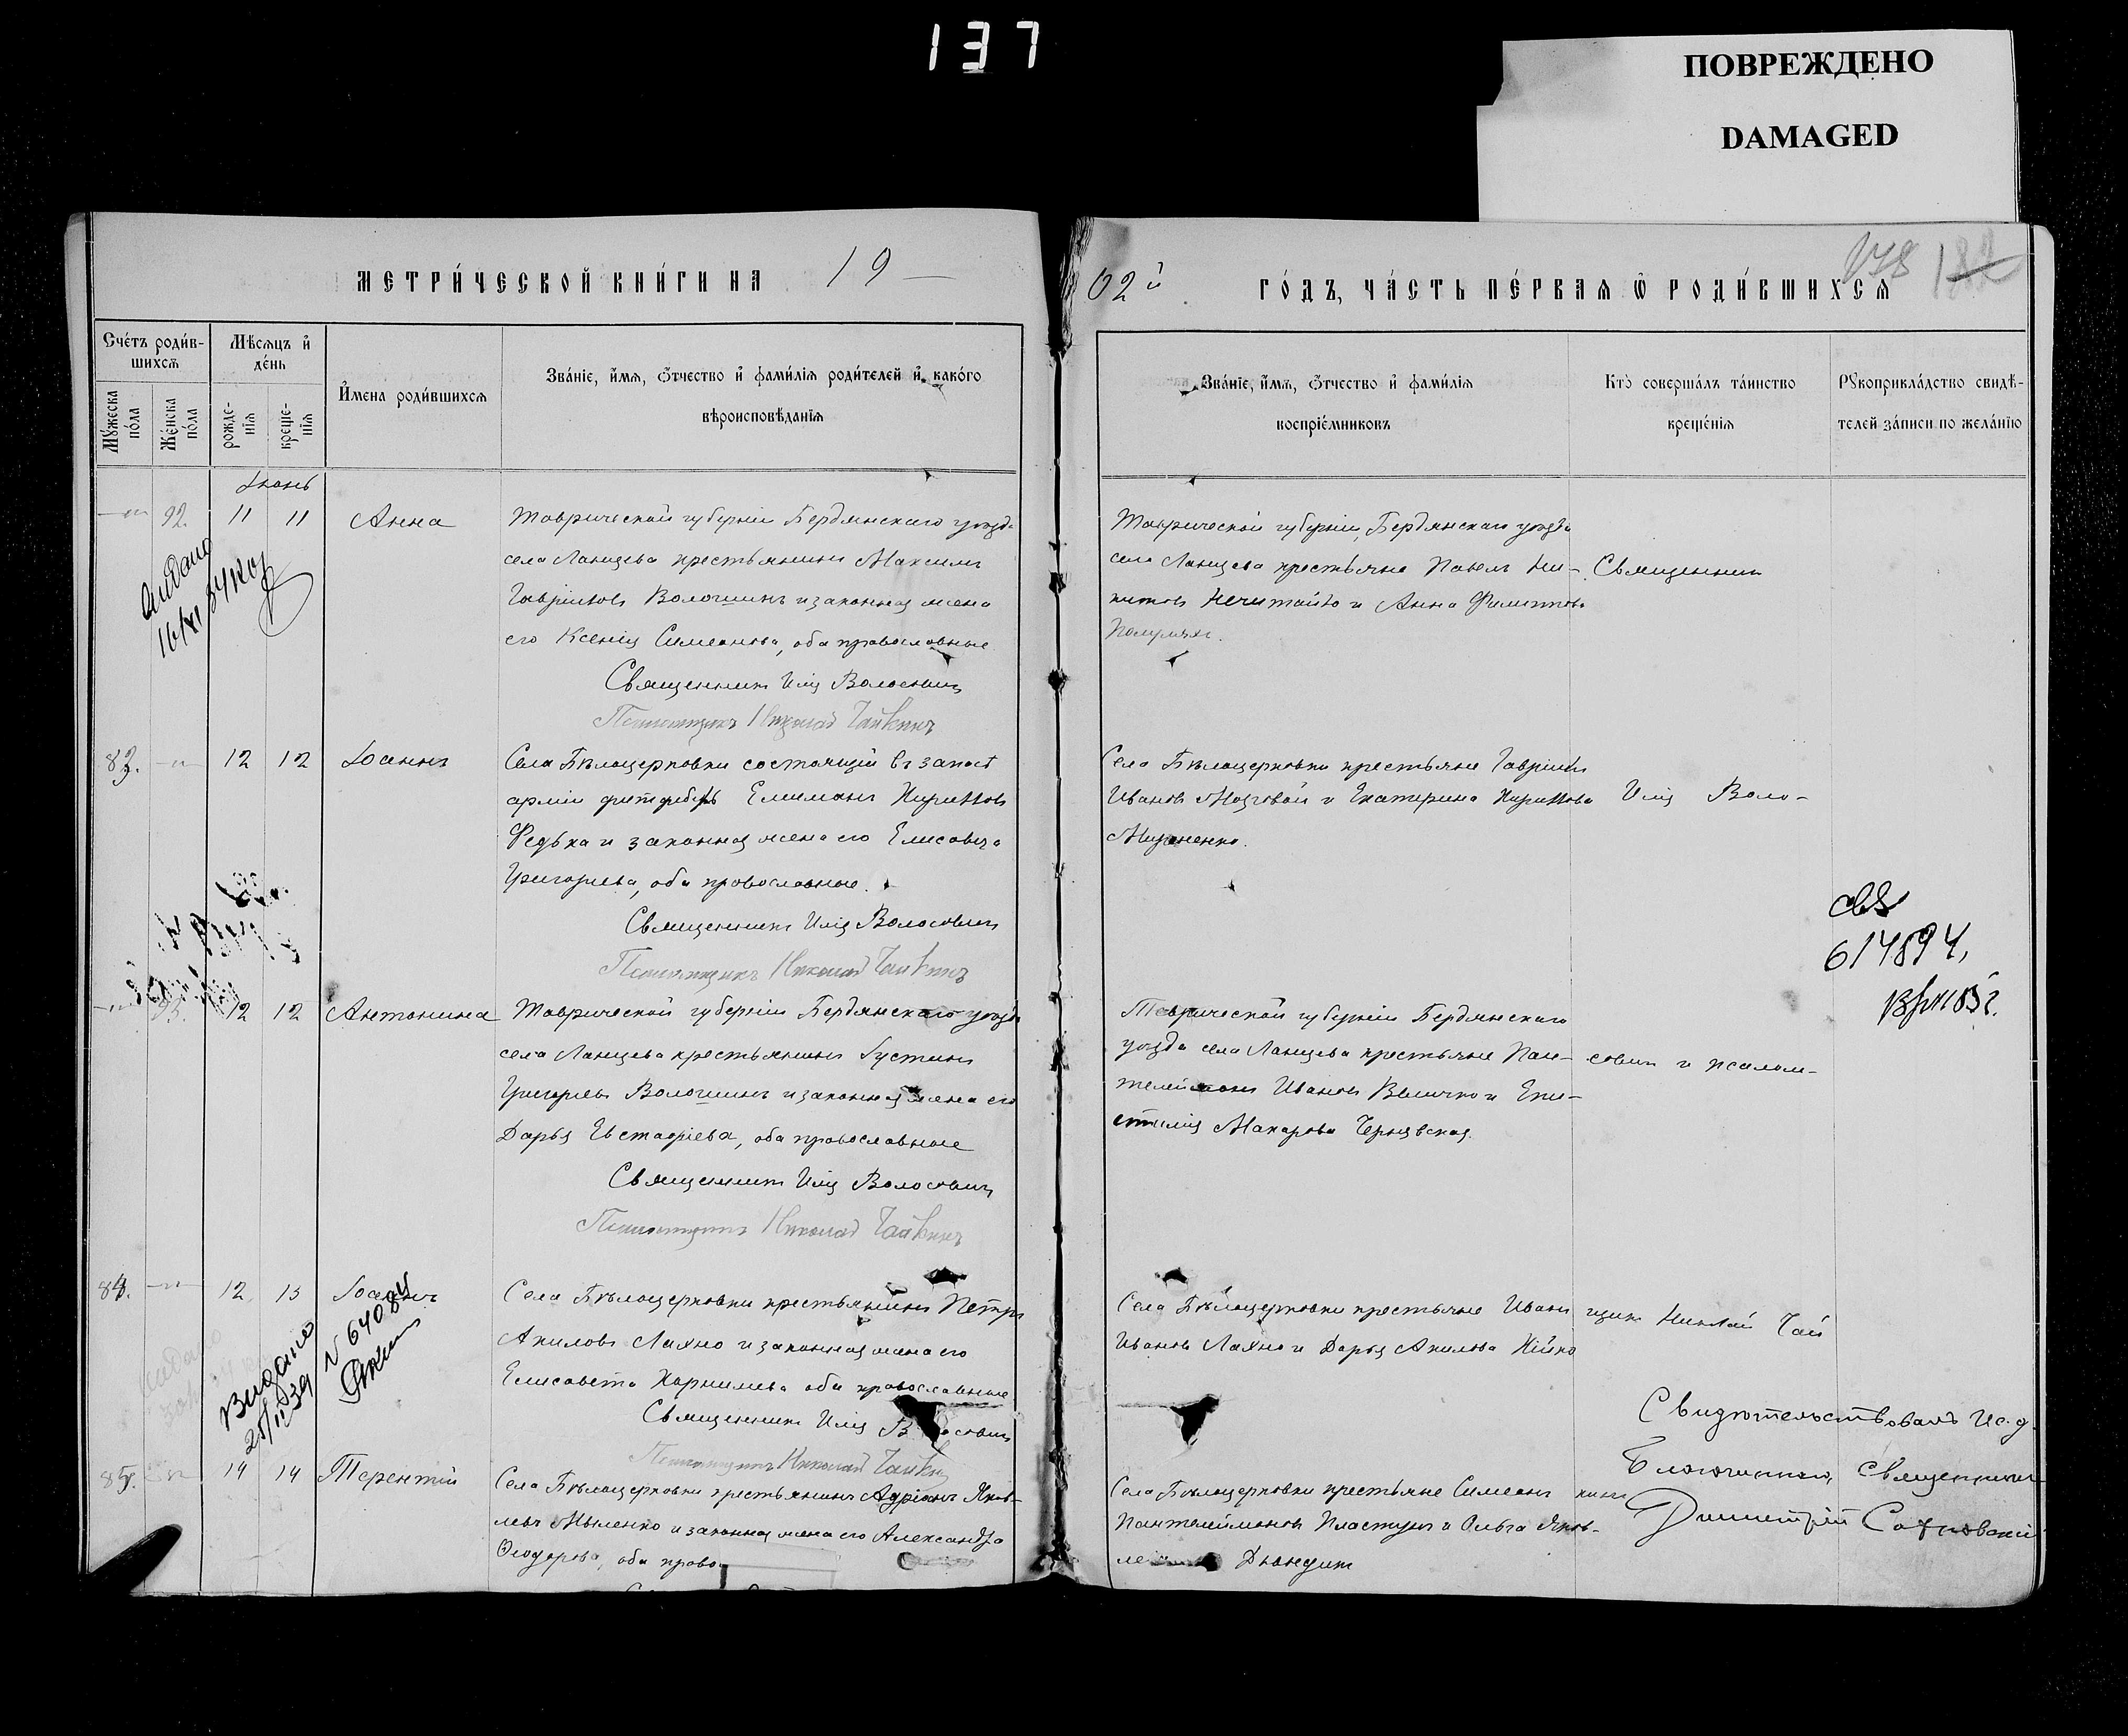 137
ПОВРЕЖДЕНО
DAMAGED
МЕТРИ́ЧЕСКОЙ КНИ́ГИ НА 19
02й ГО́ДЪ, ЧА́СТЬ ПЕ́РВАЯ Ѡ҆ РОДИ́ВШИХСЯ
178 182
Сче́тъ роди́в-
шихсѧ
Мѣ́сѧцъ и҆
де́нь
Мꙋ́жеска
по́ла
Же́нска
по́ла
рожде-
нїѧ
креще-
нїѧ
И҆мена роди́вшихсѧ
Зва́нїе, и҆́мѧ, Ѻ҆́тчество и҆ фами́лїѧ роди́телей и҆ како́го
вѣроисповѣ́данїѧ
Зва́нїе, и҆́мѧ, Ѻ҆́тчество и҆ фами́лїѧ
воспрїе́мниковъ
Кто̀ соверша́лъ та́инство
креще́нїѧ
Рꙋкоприкла́дство свидѣ́-
телей за́писи по жела́нїю
Іюнь
92. 11 11 Анна
Таврической губерніи Бердянскаго уѣзда
села Ланцева крестьянинъ Максимъ
Гавріиловъ Волошинъ и законная жена
его Ксенія Симеонова, оба православные
Священникъ Илія Волосевичъ
Псаломщикъ Николай Чайкинъ
Таврической губерніи, Бердянскаго уѣзда
села Ланцева крестьяне Павелъ Ни-
китовъ Нечитайло и Анна Филиппова
Священникъ
Видано
83. 12 12 Іоаннъ
Села Бѣлоцерковки состоящій въ запасѣ
арміи Кирилловъ
Федька и законная жена его Елисавета
Григорьева, оба православные.
Священникъ Илія Волосевичъ
Псаломщикъ Николай Чайкинъ
Села Бѣлоцерковки крестьяне Гавріилъ
Ивановъ Мозговой и Екатерина Кириллова
Мироненко.
Илія Воло-
93. 12 12 Антонина
Таврической губерніи Бердянскаго уѣзда
села Ланцева крестьянинъ Іустинъ
Григорьевъ Волошинъ и законная жена его
Дарья Евстафіева, оба православные
Священникъ Илія Волосевичъ
Псаломщикъ Николай Чайкинъ
Таврической губерніи Бердянскаго
уѣзда села Ланцева крестьяне Пан-
телеймонъ Ивановъ Величко и Епи-
стимія Макарова Чернявская.
севичъ и псалом-
84. 12 13 Іоаннъ
Села Бѣлоцерковки крестьянинъ Петръ
Акиловъ Ляхно и законная жена его
Елисавета Корнилева оба православные
Священникъ Илія
Псаломщикъ Николай
Села Бѣлоцерковки крестьяне Иванъ
Ивановъ Ляхно и Дарья Акилова Кійко
щикъ Николай Чай
Видано
N 64084
85. 14 14 Терентій
Села Бѣлоцерковки крестьянинъ Адріанъ Яков-
левъ Мыленко и законная жена его Александра
Ѳеодорова, оба право
Села Бѣлоцерковки крестьяне Симеонъ
Пантелеймоновъ Пластунъ и Ольга Яков-
кинъ
Свидѣтельствовалъ И.д.
Благочиннаго, Священникъ
Димитрій